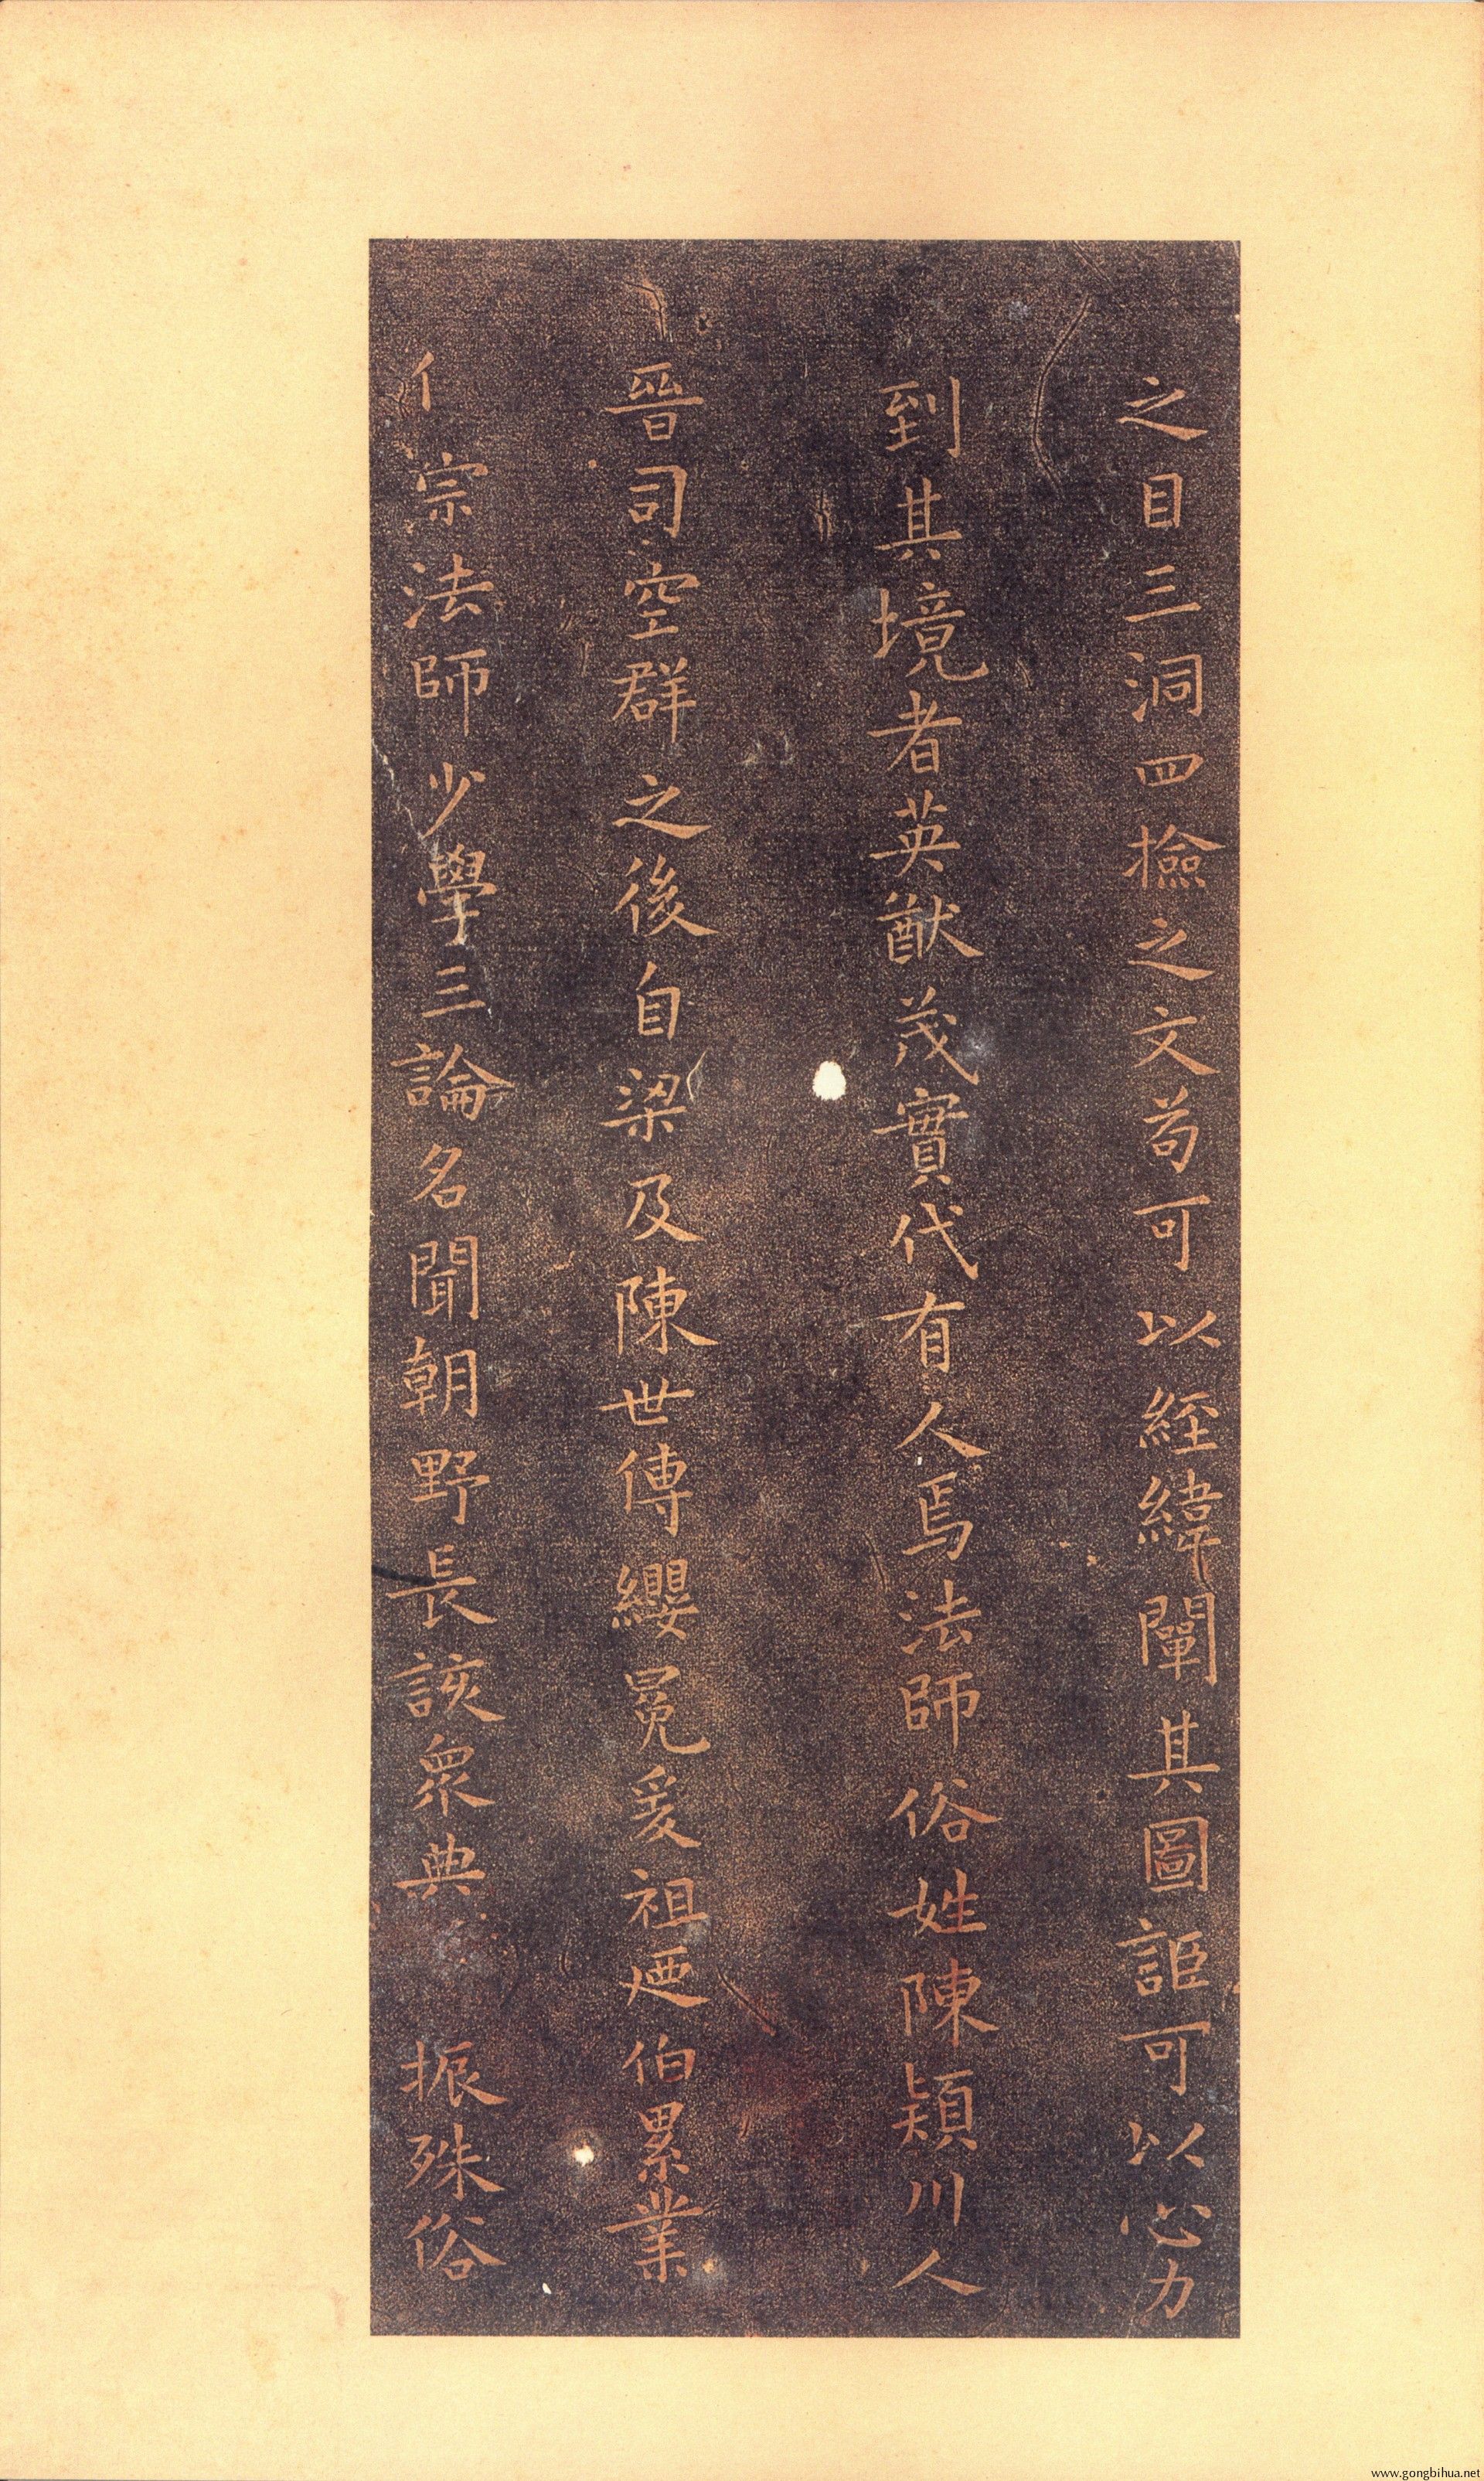 之目三洞四撿之文苟可以經緯闡其圖詎可以心力
到其境者英猷茂實代有人焉法師俗姓陳潁川人
晉司空群之後自梁及陳世傳纓冕爰祖迺伯累業
宗法師少學三論名聞朝野長該衆典振殊俗
www.gongbihua.net